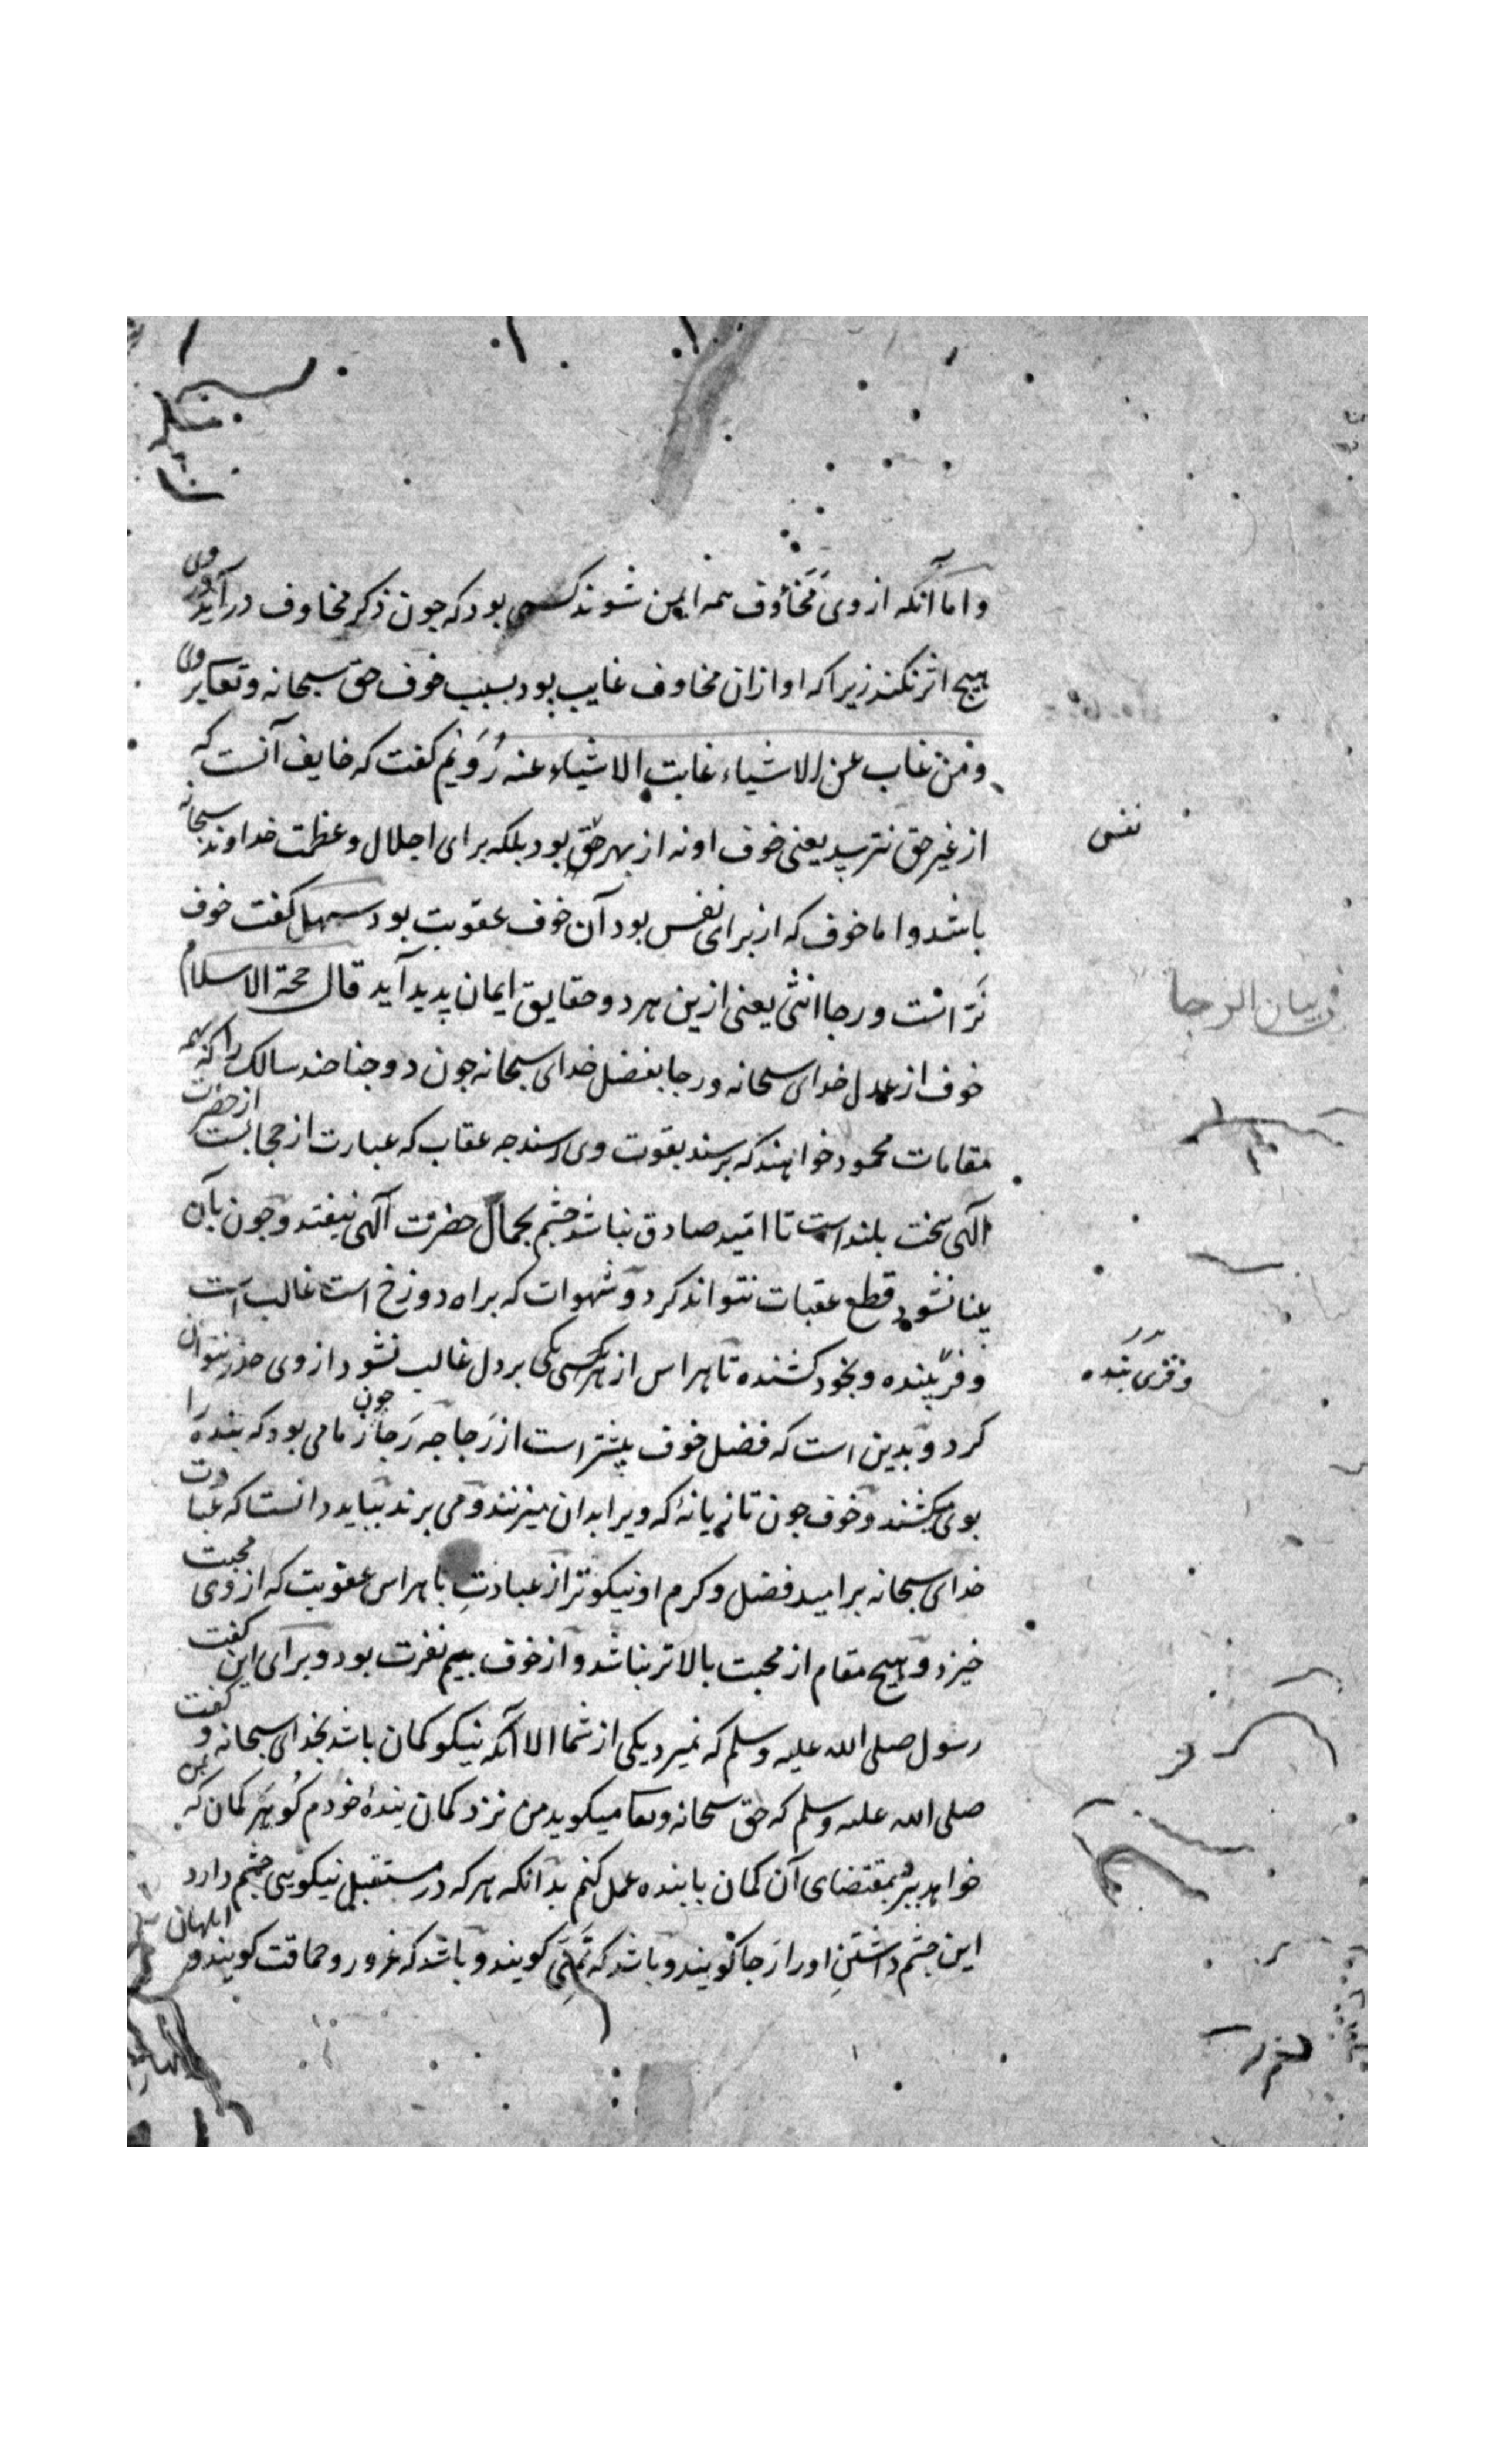 و اما آنکه از وی مَخاوف همه ایمن شوند کسی بود که چون ذکر مخاوف در آید در وی
هیچ اثر نکند زیرا که او از ان مخاوف غایب بود بسبب خوف حق سبحانه و تعا بر وی
و من غاب عن الاشیاء غابت الاشیاء عنه رُوَیْم کفت که خایف آنست که
از غیر حق نترسد یعنی خوف او نه از بهر حق بود بلکه برای اجلال و عظمت خداوند سبحانه
نفس
باشد و اما خوف که از برای نفس بود آن خوف عقوبت بود سهل کفت خوف
نَر است و رجا انثی یعنی ازین هر دو حقایق ایمان پدید آید قال حجة الاسلام
در بیان الرجا
خوف از عدل خدای سبحانه و رجا بفضل خدای سبحانه چون دو جناحند سالک را که بهمه
مقامات محمود خواهند که برسند بقوت وی رسند چه عقاب که عبارت از حجابست از حضرت
الهی سخت بلند است تا امید صادق نباشد چشم بجمال حضرت الهی نیفتد و چون بآن
بینا نشود قطع عقبات نتواند کرد و شهوات که براه دوزخ است غالب است
و فریبنده و بخود کشنده تا هراس از هر کسی یکی بر دل غالب نشود از وی حذر نتوان
و فریبنده
کرد و بدین است که فضل خوف بیشتر است از رَجا چه رَجا چون زمامی بود که بنده را
بوی میکشند و خوف چون تازیانۀ که ویرا بدان میزنند و می برند بباید دانست که عبادت
خدای سبحانه بر امید فضل و کرم او نیکوتر از عبادتِ با هراس عقوبت که از وی محبت
خیزد و هیچ مقام از محبت بالاتر نباشد و از خوف بیم نفرت بود و برای این کفت
رسول صلی الله علیه و سلم که نمیرد یکی از شما الا آنکه نیکو کمان باشد بخدای سبحانه و کفت
صلی الله علیه و سلم که حق سبحانه و تعا میکوید من نزد کمان بندۀ خودم کو هر کمان که
خواهد ببر بمقتضای آن کمان با بنده عمل کنم بدانکه هر که در مستقبل نیکویی چشم دارد
این چشم داشتنِ او را رَجا کویند و باشد که تمنّی کویند و باشد که غرور و حماقت کویند و ابلهان